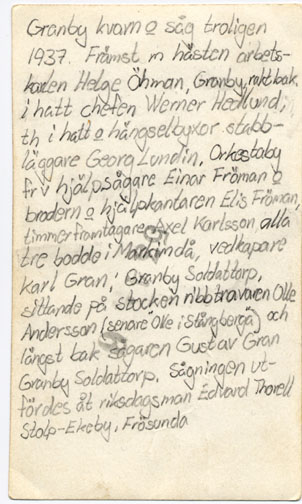 Granby kvarn o såg troligen
1937. Främst m hästen arbets-
karlen Helge Öhman, Granby, rakt bak
i hatt chefen Werner Hedlund,
th i hatt o hängselbyxor stabb-
läggare Georg Lundin, Orkestaby
fr v hjälpsågare Einar Fröman o
brodern o hjälpkantaren Elis Fröman,
timmerframtagare Axel Karlsson, alla
tre bodde i Markimdå, vedkapare
Karl Gran, Granby Soldattorp,
sittande på stocken ribbtravaren Olle
Andersson (senare Olle i Stångberga) och
längst bak sågaren Gustav Gran
Granby Soldattorp. Sågningen ut-
fördes åt riksdagsman Edvard Thorell
Stolp-Ekeby, Frösunda